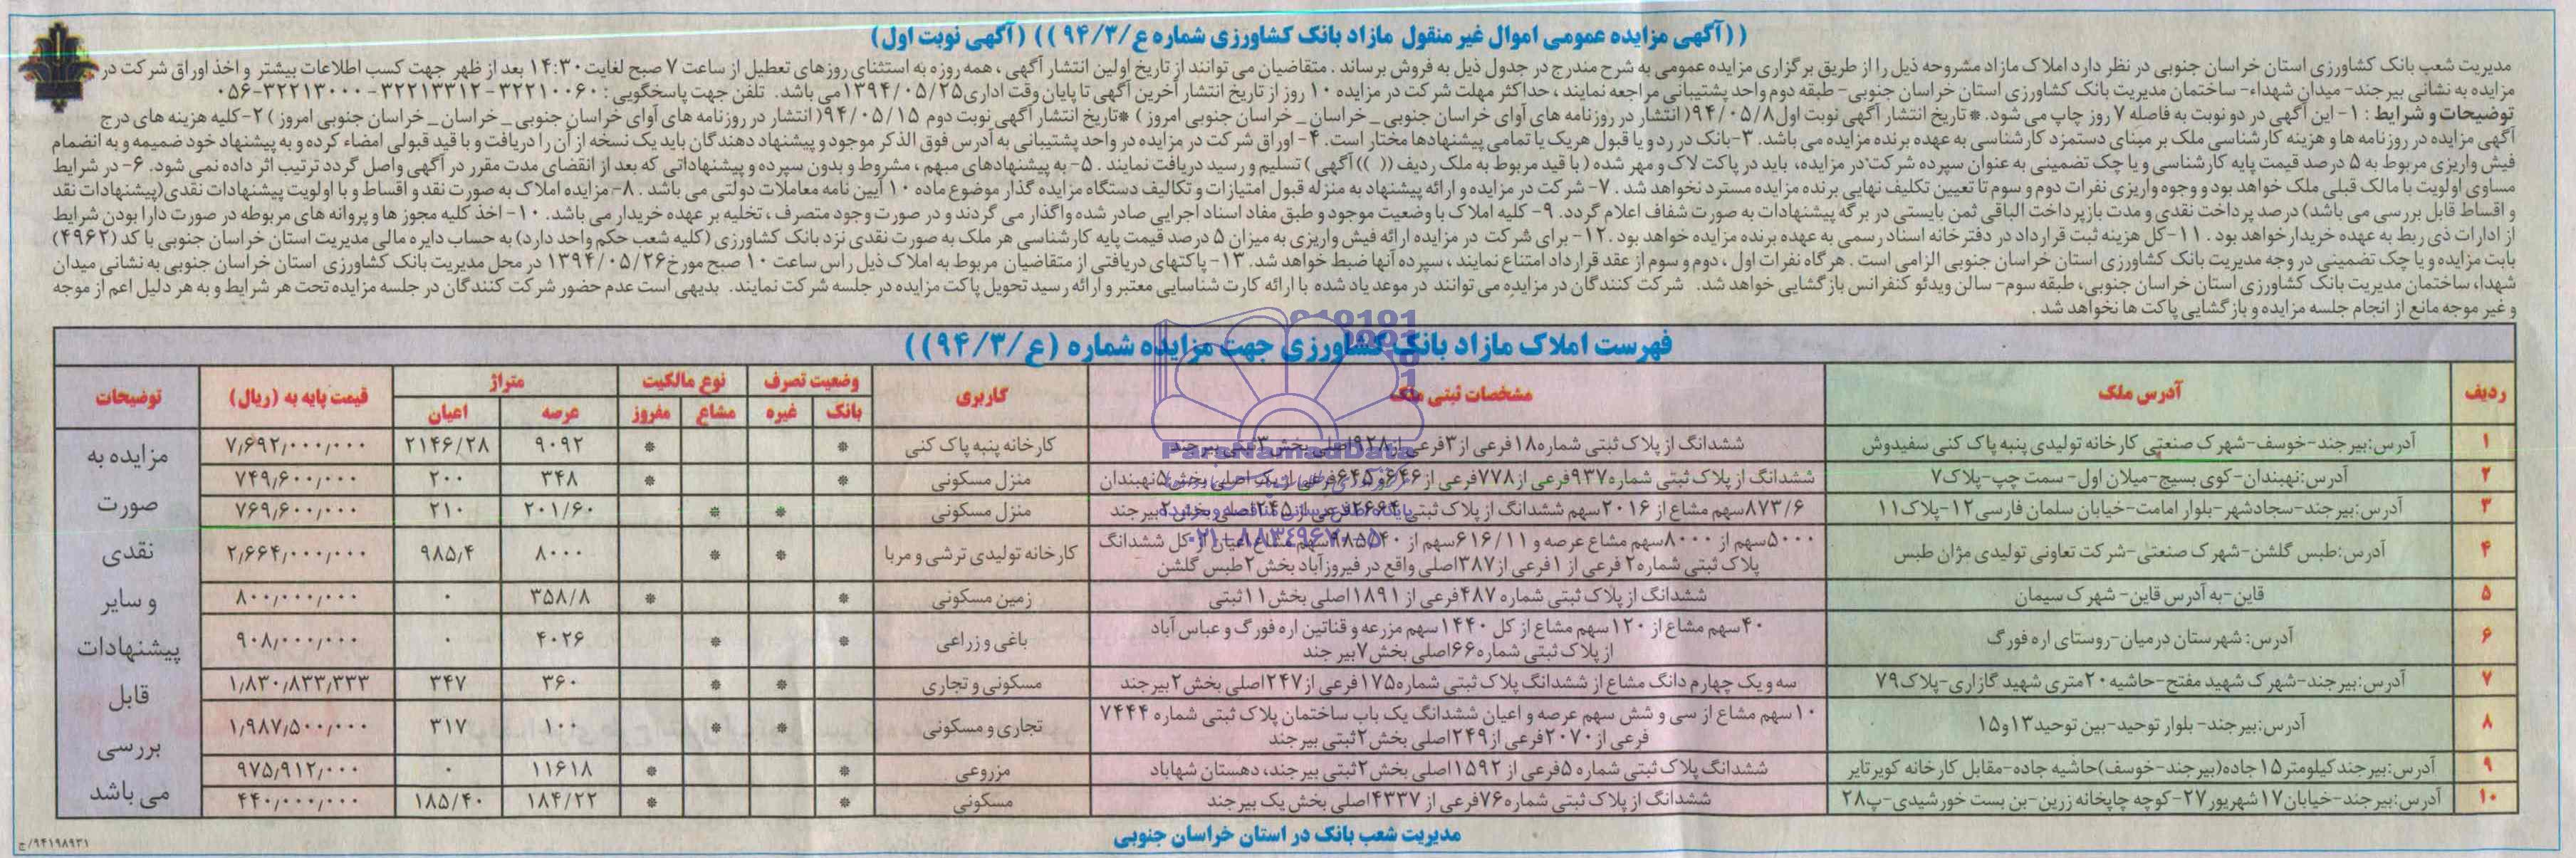 ((آگهی مزایده عمومی اموال غیر منقول مازاد بانک کشاورزی شماره ع/۹۴/۳)) (آگهی نوبت اول)
مدیریت شعب بانک کشاورزی استان خراسان جنوبی در نظر دارد املاک مازاد مشروحه ذیل را از طریق برگزاری مزایده عمومی به شرح مندرج در جدول ذیل به فروش برساند . متقاضیان می توانند از تاریخ اولین انتشار آگهی ، همه روزه به استثنای روزهای تعطیل از ساعت ۷ صبح لغایت ۱۴:۳۰ بعد از ظهر جهت کسب اطلاعات بیشتر و اخذ اوراق شرکت در
مزایده به نشانی بیرجند- میدان شهداء- ساختمان مدیریت بانک کشاورزی استان خراسان جنوبی- طبقه دوم واحد پشتیبانی مراجعه نمایند ، حداکثر مهلت شرکت در مزایده ۱۰ روز از تاریخ انتشار آخرین آگهی تا پایان وقت اداری ۱۳۹۴/۰۵/۲۵ می باشد. تلفن جهت پاسخگویی : ۳۲۲۱۰۰۶۰ - ۳۲۲۱۳۳۱۲ - ۳۲۲۱۳۰۰۰-۰۵۶
توضیحات و شرایط : ۱- این آگهی در دو نوبت به فاصله ۷ روز چاپ می شود. *تاریخ انتشار آگهی نوبت اول ۹۴/۰۵/۸ (انتشار در روزنامه های آوای خراسان جنوبی _ خراسان _ خراسان جنوبی امروز) *تاریخ انتشار آگهی نوبت دوم ۹۴/۰۵/۱۵ (انتشار در روزنامه های آوای خراسان جنوبی _ خراسان _ خراسان جنوبی امروز) ۲- کلیه هزینه های درج
آگهی مزایده در روزنامه ها و هزینه کارشناسی ملک بر مبنای دستمزد کارشناسی به عهده برنده مزایده می باشد. ۳- بانک در رد و یا قبول هریک یا تمامی پیشنهادها مختار است. ۴- اوراق شرکت در مزایده در واحد پشتیبانی به آدرس فوق الذکر موجود و پیشنهاد دهندگان باید یک نسخه از آن را دریافت و با قید قبولی امضاء کرده و به پیشنهاد خود ضمیمه و به انضمام
فیش واریزی مربوط به ۵ درصد قیمت پایه کارشناسی و یا چک تضمینی به عنوان سپرده شرکت در مزایده، باید در پاکت لاک و مهر شده ( با قید مربوط به ملک ردیف (( )) آگهی ) تسلیم و رسید دریافت نمایند . ۵- به پیشنهادهای مبهم ، مشروط و بدون سپرده و پیشنهاداتی که بعد از انقضای مدت مقرر در آگهی واصل گردد ترتیب اثر داده نمی شود. ۶- در شرایط
مساوی اولویت با مالک قبلی ملک خواهد بود و وجوه واریزی نفرات دوم و سوم تا تعیین تکلیف نهایی برنده مزایده مسترد نخواهد شد . ۷- شرکت در مزایده و ارائه پیشنهاد به منزله قبول امتیازات و تکالیف دستگاه مزایده گذار موضوع ماده ۱۰ آیین نامه معاملات دولتی می باشد . ۸- مزایده املاک به صورت نقد و اقساط و با اولویت پیشنهادات نقدی (پیشنهادات نقد
و اقساط قابل بررسی می باشد) درصد پرداخت نقدی و مدت بازپرداخت الباقی ثمن بایستی در برگه پیشنهادات به صورت شفاف اعلام گردد. ۹- کلیه املاک با وضعیت موجود و طبق مفاد اسناد اجرایی صادر شده واگذار می گردند و در صورت وجود متصرف ، تخلیه بر عهده خریدار می باشد. ۱۰- اخذ کلیه مجوز ها و پروانه های مربوطه در صورت دارا بودن شرایط
از ادارات ذی ربط به عهده خریدار خواهد بود . ۱۱- کل هزینه ثبت قرارداد در دفترخانه اسناد رسمی به عهده برنده مزایده خواهد بود . ۱۲- برای شرکت در مزایده ارائه فیش واریزی به میزان ۵ درصد قیمت پایه کارشناسی هر ملک به صورت نقدی نزد بانک کشاورزی (کلیه شعب حکم واحد دارد) به حساب دایره مالی مدیریت استان خراسان جنوبی با کد (۴۹۶۲)
بابت مزایده و یا چک تضمینی در وجه مدیریت بانک کشاورزی استان خراسان جنوبی الزامی است . هر گاه نفرات اول ، دوم و سوم از عقد قرارداد امتناع نمایند ، سپرده آنها ضبط خواهد شد. ۱۳- پاکتهای دریافتی از متقاضیان مربوط به املاک ذیل راس ساعت ۱۰ صبح مورخ ۱۳۹۴/۰۵/۲۶ در محل مدیریت بانک کشاورزی استان خراسان جنوبی به نشانی میدان
شهدا، ساختمان مدیریت بانک کشاورزی استان خراسان جنوبی، طبقه سوم- سالن ویدئو کنفرانس بازگشایی خواهد شد. شرکت کنندگان در مزایده می توانند در موعد یاد شده با ارائه کارت شناسایی معتبر و ارائه رسید تحویل پاکت مزایده در جلسه شرکت نمایند. بدیهی است عدم حضور شرکت کنندگان در جلسه مزایده تحت هر شرایط و به هر دلیل اعم از موجه
و غیر موجه مانع از انجام جلسه مزایده و بازگشایی پاکت ها نخواهد شد .
فهرست املاک مازاد بانک کشاورزی جهت مزایده شماره (ع/۹۴/۳))
ردیف آدرس ملک مشخصات ثبتی ملک کاربری وضعیت تصرف نوع مالکیت متراژ قیمت پایه به (ریال) توضیحات
بانک غیره مشاع مفروز عرصه اعیان
۱ آدرس:بیرجند-خوسف-شهرک صنعتی کارخانه تولیدی پنبه پاک کنی سفیدوش ششدانگ از پلاک ثبتی شماره ۱۸ فرعی از ۳ فرعی از ۹۲۸ اصلی بخش ۳ ثبتی بیرجند کارخانه پنبه پاک کنی * * ۹۰۹۲ ۲۱۴۶/۲۸ ۷٫۶۹۲٫۰۰۰٫۰۰۰
۲ آدرس:نهبندان-کوی بسیج-میلان اول- سمت چپ-پلاک ۷ ششدانگ از پلاک ثبتی شماره ۹۳۷ فرعی از ۷۷۸ فرعی از ۶۴۶ و ۶۴۵ فرعی از یک اصلی بخش ۵ نهبندان منزل مسکونی * * ۳۴۸ ۲۰۰ ۷۴۹٫۶۰۰٫۰۰۰
۳ آدرس:بیرجند-سجادشهر-بلوار امامت-خیابان سلمان فارسی ۱۲-پلاک ۱۱ ۸۷۳/۶ سهم مشاع از ۲۰۱۶ سهم ششدانگ از پلاک ثبتی ۲۶۶۴ فرعی از ۲۴۵ اصلی بخش ۲ بیرجند منزل مسکونی * * ۲۰۱/۶۰ ۲۱۰ ۷۶۹٫۶۰۰٫۰۰۰
۴ آدرس:طبس گلشن-شهرک صنعتی-شرکت تعاونی تولیدی مژان طبس ۵۰۰۰ سهم از ۸۰۰۰ سهم مشاع عرصه و ۶۱۶/۱۱ سهم از ۹۸۵/۴۰ سهم مشاع اعیان از کل ششدانگ
پلاک ثبتی شماره ۲ فرعی از ۱ فرعی از ۳۸۷ اصلی واقع در فیروزآباد بخش ۲ طبس گلشن کارخانه تولیدی ترشی و مربا * * ۸۰۰۰ ۹۸۵/۴ ۲٫۶۶۴٫۰۰۰٫۰۰۰
۵ قاین-به آدرس قاین- شهرک سیمان ششدانگ از پلاک ثبتی شماره ۴۸۷ فرعی از ۱۸۹۱ اصلی بخش ۱۱ ثبتی زمین مسکونی * * ۳۵۸/۸ ۰ ۸۰۰٫۰۰۰٫۰۰۰
۶ آدرس: شهرستان درمیان-روستای اره فورگ ۴۰ سهم مشاع از ۱۲۰ سهم مشاع از کل ۱۴۴۰ سهم مزرعه و قناتین اره فورگ و عباس آباد
از پلاک ثبتی شماره ۶۶ اصلی بخش ۷ بیرجند باغی و زراعی * * ۴۰۲۶ ۰ ۹۰۸٫۰۰۰٫۰۰۰
۷ آدرس:بیرجند-شهرک شهید مفتح-حاشیه ۲۰ متری شهید گازاری-پلاک ۷۹ سه و یک چهارم دانگ مشاع از ششدانگ پلاک ثبتی شماره ۱۷۵ فرعی از ۲۴۷ اصلی بخش ۲ بیرجند مسکونی و تجاری * * ۳۶۰ ۳۴۷ ۱٫۸۳۰٫۸۳۳٫۳۳۳
۸ آدرس:بیرجند- بلوار توحید-بین توحید ۱۳ و ۱۵ ۱۰ سهم مشاع از سی و شش سهم عرصه و اعیان ششدانگ یک باب ساختمان پلاک ثبتی شماره ۷۴۴۴
فرعی از ۲۰۷۰ فرعی از ۲۴۹ اصلی بخش ۲ ثبتی بیرجند تجاری و مسکونی * * ۱۰۰ ۳۱۷ ۱٫۹۸۷٫۵۰۰٫۰۰۰
۹ آدرس:بیرجند کیلومتر ۱۵ جاده (بیرجند-خوسف) حاشیه جاده-مقابل کارخانه کویرتایر ششدانگ پلاک ثبتی شماره ۵ فرعی از ۱۵۹۲ اصلی بخش ۲ ثبتی بیرجند، دهستان شهاباد مزروعی * * ۱۱۶۱۸ ۰ ۹۷۵٫۹۱۲٫۰۰۰
۱۰ آدرس:بیرجند-خیابان ۱۷ شهریور ۲۷-کوچه چاپخانه زرین-بن بست خورشیدی-پ ۲۸ ششدانگ از پلاک ثبتی شماره ۷۶ فرعی از ۴۳۳۷ اصلی بخش یک بیرجند مسکونی * * ۱۸۴/۲۲ ۱۸۵/۴۰ ۴۴۰٫۰۰۰٫۰۰۰
مزایده به
صورت
نقدی
و سایر
پیشنهادات
قابل
بررسی
می باشد
ParsNamadData
۰۲۱-۸۸۳۴۹۶۷۰
مدیریت شعب بانک در استان خراسان جنوبی
۹۴۱۹۸۹۳۱/ج